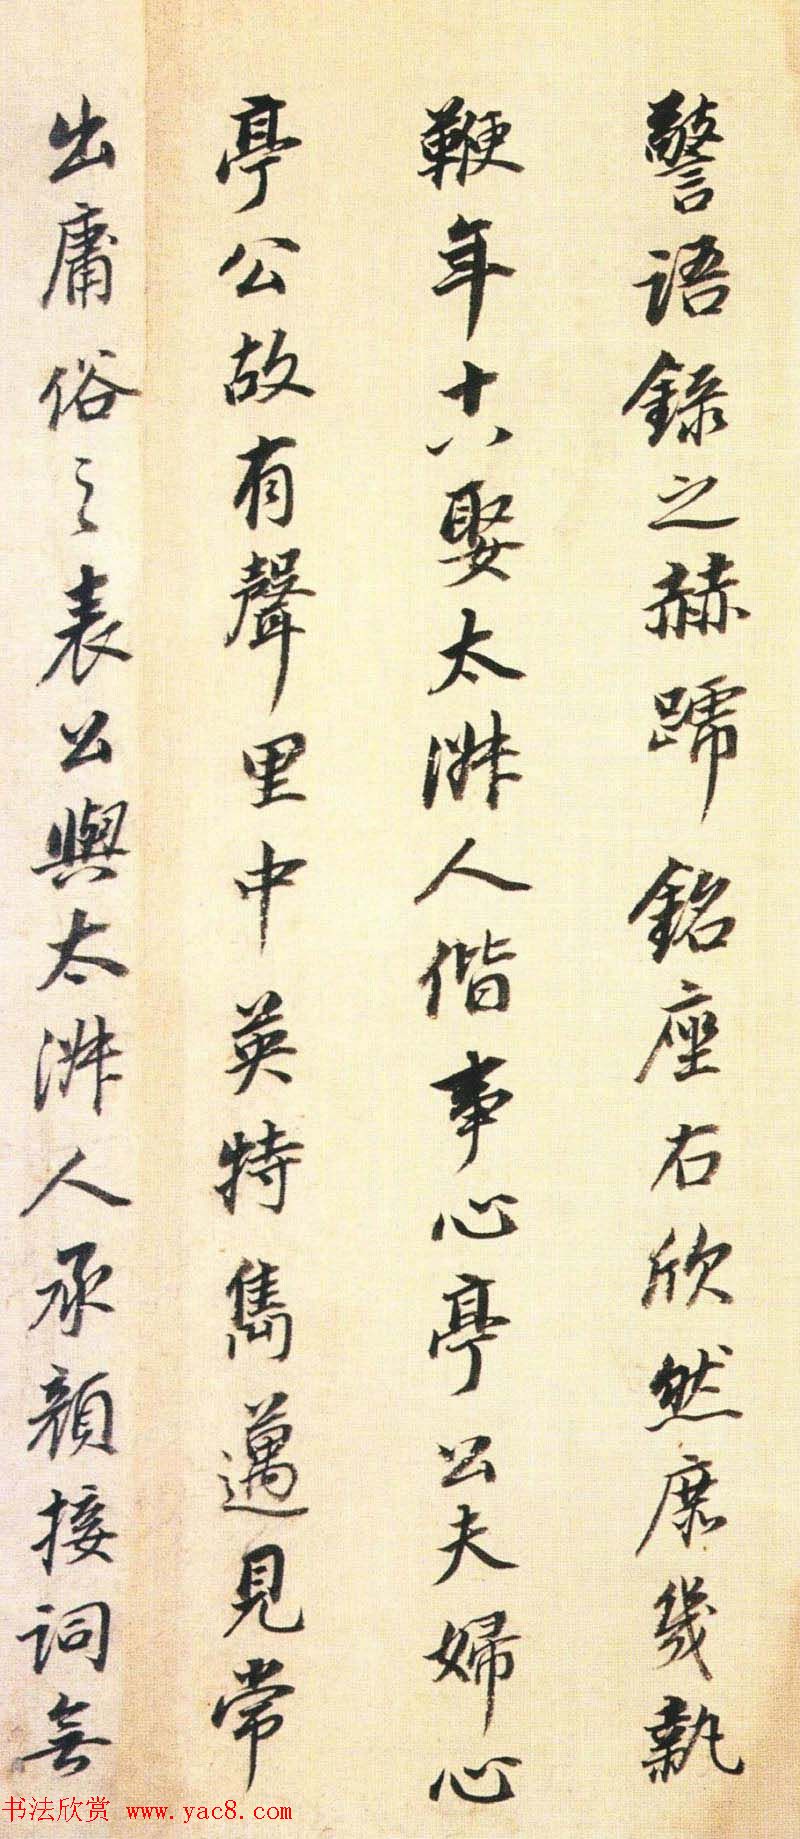 警語錄之赫蹏銘座右欣然庶幾執
鞭年十八娶太淑人偕事心亭公夫婦心
亭公故有聲里中英特雋邁見常
出庸俗之表公與太淑人承顏接詞無
书法欣赏 www.yac8.com